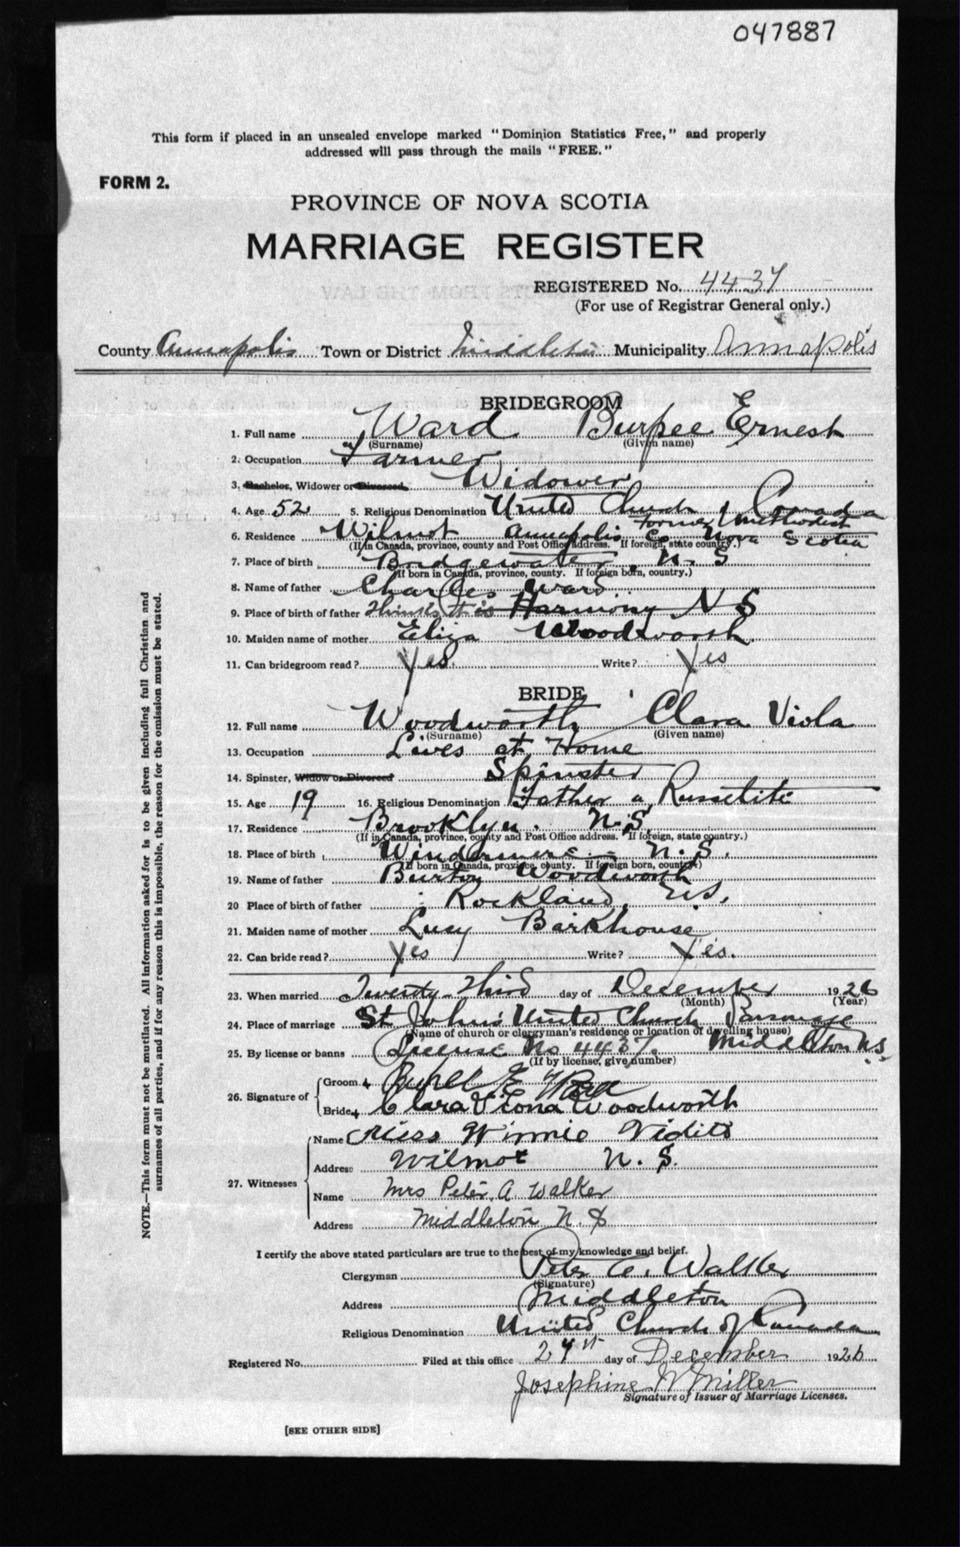 047887
This form if placed in an unsealed envelope marked "Dominion Statistics Free," and properly
addressed will pass through the mails "FREE."
FORM 2.
PROVINCE OF NOVA SCOTIA
MARRIAGE REGISTER
REGISTERED No. 4437
(For use of Registrar General only.)
County Annapolis Town or District Middleton Municipality Annapolis
BRIDEGROOM
1. Full name Ward Burpee Ernest
(Surname) (Given name)
2. Occupation Farmer
3. Bachelor, Widower or Divorced Widower
4. Age 52 5. Religious Denomination United Church of Canada
former Methodist
6. Residence Wilmot Annapolis Co Nova Scotia
(If in Canada, province, county and Post Office address. If foreign, state country.)
7. Place of birth Bridgewater N. S
(If born in Canada, province, county. If foreign born, country.)
8. Name of father Charles Ward
9. Place of birth of father Thinks it is Harmony N S
10. Maiden name of mother Eliza Woodworth
11. Can bridegroom read? Yes. Write? Yes
BRIDE
12. Full name Woodworth Clara Viola
(Surname) (Given name)
13. Occupation Lives at Home
14. Spinster, Widow or Divorced Spinster
15. Age 19 16. Religious Denomination Father a Russelite
17. Residence Brooklyn. N.S.
(If in Canada, province, county and Post Office address. If foreign, state country.)
18. Place of birth Windermere N.S.
(If born in Canada, province, county. If foreign born, country.)
19. Name of father Burton Woodworth
20 Place of birth of father Rockland N.S.
21. Maiden name of mother Lucy Barkhouse
22. Can bride read? Yes Write? Yes.
23. When married Twenty-Third day of December 1926
(Month) (Year)
24. Place of marriage St John's United Church Parsonage
(Name of church or clergyman's residence or location of dwelling house)
Middleton N.S.
25. By license or banns License No 4437
(If by license, give number)
26. Signature of
Groom E Ward
Bride Clara Woodworth
27. Witnesses
Name Miss Winnie Vidito
Address Wilmot N. S.
Name Mrs Peter A Walker
Address Middleton N. S
I certify the above stated particulars are true to the best of my knowledge and belief.
Clergyman Peter A. Walker
(Signature)
Address Middleton
Religious Denomination United Church of Canada
Registered No. Filed at this office day of December 1926
Josephine W Miller
Signature of Issuer of Marriage Licenses.
[SEE OTHER SIDE]
NOTE.—This form must not be mutilated. All information asked for is to be given including full Christian and
surnames of all parties, and if for any reason this is impossible, the reason for the omission must be stated.